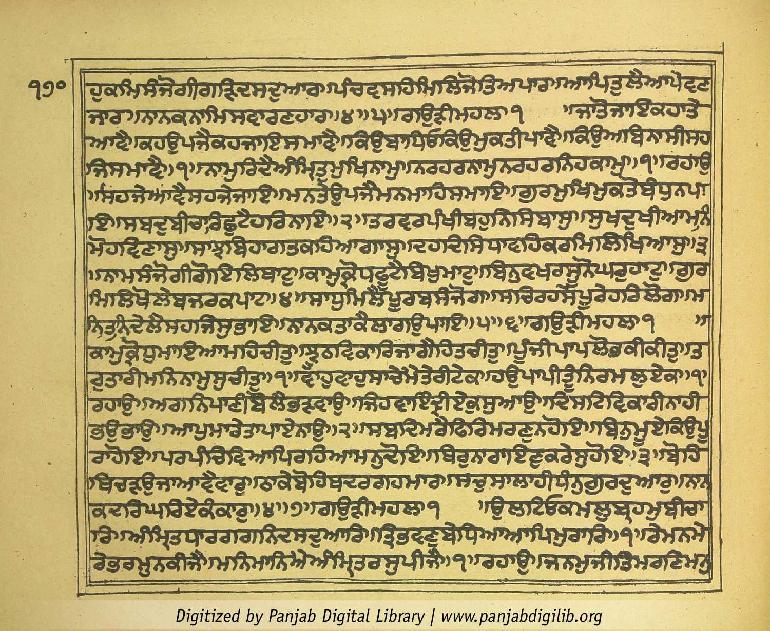 ੧੭੦
ਹੁਕਮਿਸੰਜੋਗੀਗੜਿਦਸਦੁਆਰ॥ਪੰਚਵਸਹਿਮਿਲਿਜੋਤਿਅਪਾਰ॥ਆਪਿਤੁਲੈਆਪੇਵਣ
ਜਾਰ॥ਨਾਨਕਨਾਮਿਸਵਾਰਣਹਾਰ॥੪॥੫॥ਗਉੜੀਮਹਲਾ੧ ॥ਜਾਤੋਜਾਇਕਹਾਤੇ
ਆਵੈ॥ਕਹਉਪਜੈਕਹਜਾਇਸਮਾਵੈ॥ਕਿਉਬਾਧਿਓਕਿਉਮੁਕਤੀਪਾਵੈ॥ਕਿਉਅਬਿਨਾਸੀਸਹ
ਜਿਸਮਾਵੈ॥੧॥ਨਾਮੁਰਿਦੈਅੰਮ੍ਰਿਤੁਮੁਖਿਨਾਮੁ॥ਨਰਹਰਨਾਮੁਨਰਹਰਨਿਹਕਾਮੁ॥੧॥ਰਹਾਉ
॥ਸਹਜੇਆਵੈਸਹਜੇਜਾਇ॥ਮਨਤੇਉਪਜੈਮਨਮਾਹਿਸਮਾਇ॥ਗੁਰਮੁਖਿਮੁਕਤੋਬੰਧੁਨਪਾ
ਇ॥ਸਬਦੁਬੀਚਾਰਿਛੁਟੈਹਰਿਨਾਇ॥੨॥ਤਰਵਰਪੰਖੀਬਹੁਨਿਸਿਬਾਸੁ॥ਸੁਖਦੁਖੀਆਮਨਿ
ਮੋਹਵਿਣਾਸੁ॥ਸਾਝਬਿਹਾਗਤਕਹਿਆਗਾਸੁ॥ਦਹਦਿਸਿਧਾਵਹਿਕਰਮਿਲਿਖਿਆਸੁ॥੩
॥ਨਾਮਸੰਜੋਗੀਗੋਇਲਿਥਾਟੁ॥ਕਾਮਕ੍ਰੋਧਫੂਟੈਬਿਖੁਮਾਟੁ॥ਬਿਨੁਵਖਰਸੂਨੋਘਰੁਹਾਟੁ॥ਗੁਰ
ਮਿਲਿਖੋਲੇਬਜਰਕਪਾਟ॥੪॥ਸਾਧੁਮਿਲੈਪੂਰਬਸੰਜੋਗ॥ਸਚਿਰਹਸੇਪੂਰੇਹਰਿਲੋਗ॥ਮ
ਨੁਤਨੁਦੇਲੈਸਹਜਿਸੁਭਾਇ॥ਨਾਨਕਤਾਕੈਲਾਗਉਪਾਇ॥੫॥੬॥ਗਉੜੀਮਹਲਾ੧ ॥
ਕਾਮੁਕ੍ਰੋਧੁਮਾਇਆਮਹਿਚੀਤੁ॥ਝੂਠਵਿਕਾਰਿਜਾਗੈਹਿਤਚੀਤੁ॥ਪੂੰਜੀਪਾਪਲੋਭਕੀਕੀਤੁ॥ਤ
ਰੁਤਾਰੀਮਨਿਨਾਮੁਸੁਚੀਤੁ॥੧॥ਵਾਹੁਵਾਹੁਸਾਚੇਮੈਤੇਰੀਟੇਕ॥ਹਉਪਾਪੀਤੂੰਨਿਰਮਲੁਏਕ॥੧॥
ਰਹਾਉ॥ਅਗਨਿਪਾਣੀਬੋਲੈਭੜਵਾਉ॥ਜਿਹਵਾਇੰਦ੍ਰੀਏਕੁਸੁਆਉ॥ਦਿਸਟਿਵਿਕਾਰੀਨਾਹੀ
ਭਉਭਾਉ॥ਆਪੁਮਾਰੇਤਾਪਾਏਨਾਉ॥੨॥ਸਬਦਿਮਰੈਫਿਰਿਮਰਣੁਨਹੋਇ॥ਬਿਨੁਮੂਏਕਿਉਪੂ
ਰਾਹੋਇ॥ਪਰਪੰਚਿਵਿਆਪਿਰਹਿਆਮਨੁਦੋਇ॥ਥਿਰੁਨਾਰਾਇਣੁਕਰੇਸੁਹੋਇ॥੩॥ਬੋਹਿ
ਥਿਚੜਉਜਾਆਵੈਵਾਰੁ॥ਠਾਕੇਬੋਹਿਥਦਰਗਹਮਾਰ॥ਸਚੁਸਾਲਾਹੀਧੰਨੁਗੁਰਦੁਆਰੁ॥ਨਾਨ
ਕਦਰਿਘਰਿਏਕੰਕਾਰੁ॥੪॥੭॥ਗਉੜੀਮਹਲਾ੧ ॥ਉਲਟਿਓਕਮਲੁਬ੍ਰਹਮੁਬੀਚਾ
ਰਿ॥ਅੰਮ੍ਰਿਤਧਾਰਗਗਨਿਦਸਦੁਆਰਿ॥ਤ੍ਰਿਭਵਣੁਬੇਧਿਆਆਪਿਮੁਰਾਰਿ॥੧॥ਰੇਮਨਮੇ
ਰੇਭਰਮੁਨਕੀਜੈ॥ਮਨਿਮਾਨਿਐਅੰਮ੍ਰਿਤਰਸੁਪੀਜੈ॥੧॥ਰਹਾਉ॥ਜਨਮੁਜੀਤਿਮਰਣਿਮਨੁ
Digitized by Panjab Digital Library | www.panjabdigilib.org